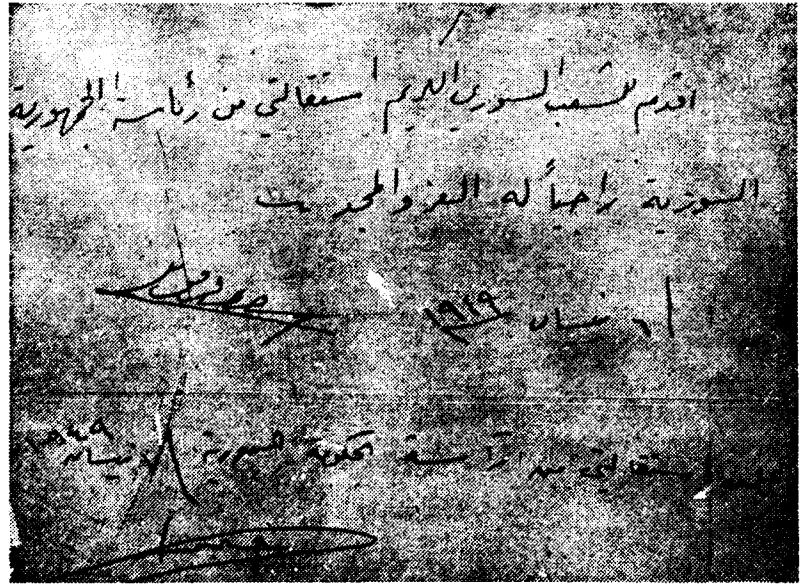 اقدم للشعب السوري الكريم استقالتي من رئاسة الجمهورية
السورية راجياً له العز والمجد
٦ نيسان ١٩٤٩
استقالتي من رآسة الحكومة السورية ٧ نيسان ١٩٤٩